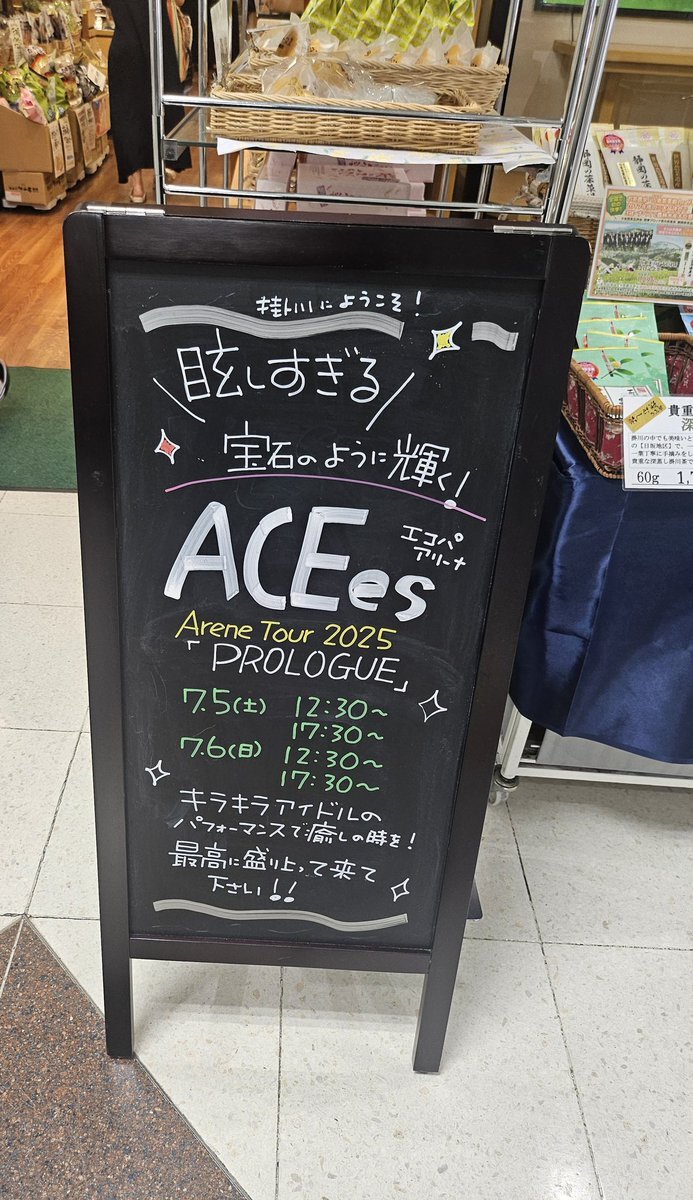 掛川にようこそ!
眩しすぎる
宝石のように輝く!
ACEes
エコパ
アリーナ
Arene Tour 2025
「PROLOGUE」
7.5(土) 12:30～
17:30～
7.6(日) 12:30～
17:30～
キラキラアイドルの
パフォーマンスで癒しの時を!
最高に盛り上って来て
下さい!!
静岡の茶葉
貴重
深
掛川の中でも美味いと
の【日坂地区】で、
一葉丁寧に手摘みをし
貴重な深蒸し掛川茶で
60g 1,7